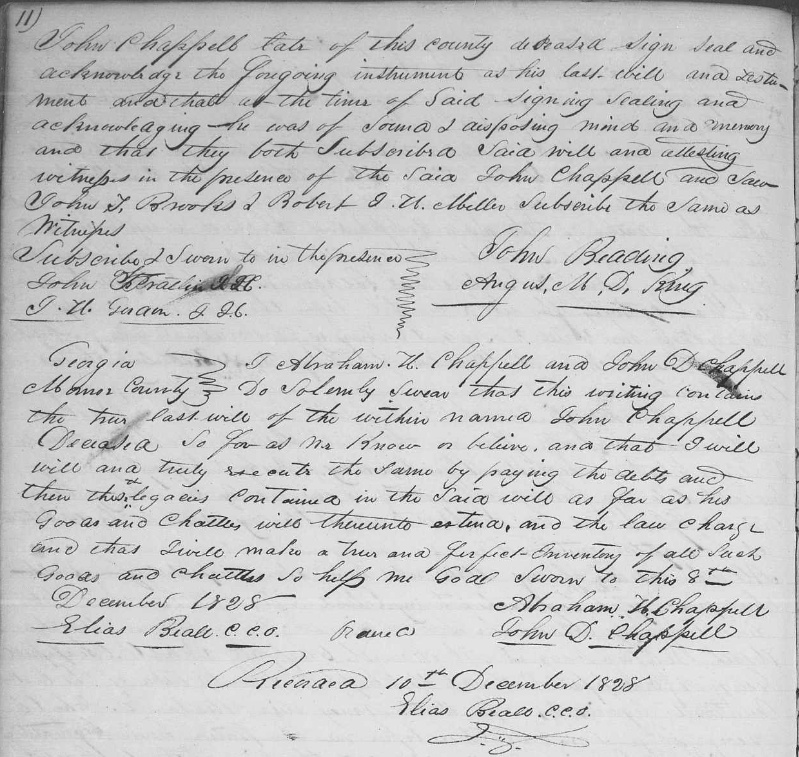 11)
John Chappell late of this county deceased sign seal and
acknowledge the foregoing instrument as his last will and testa-
ment and that at the time of said signing sealing and
acknowledging he was of sound & disposing mind and memory
and that they both subscribed said will and attesting
witness in the presence of the said John Chappell and saw
John S. Brooks & Robert J. H. Miller Subscribe the same as
Witness
Subscribed & Sworn to in the presence
John J. I. C.
J. H. J. I. C.
John Reading
Angus, M, D, King
Georgia
Monroe County
I Abraham. H. Chappell and John D Chappell
Do Solemly swear that this writing contains
the true last will of the within named John Chappell
Deceased So far as we Know or believe, and that I will
will and truly execute the same by paying the debts and
then the legacies contained in the said will as far as his
Goods and Chattles will thereunto extend, and the law charge
and that I will make a true and perfect Inventory of all such
Goods and chattles So help me God Sworn to this 8th
December 1828
Abraham H. Chappell
Elias Beall. c. c. o.
John D. Chappell
Recorded 10th December 1828
Elias Beall. c. c. o.